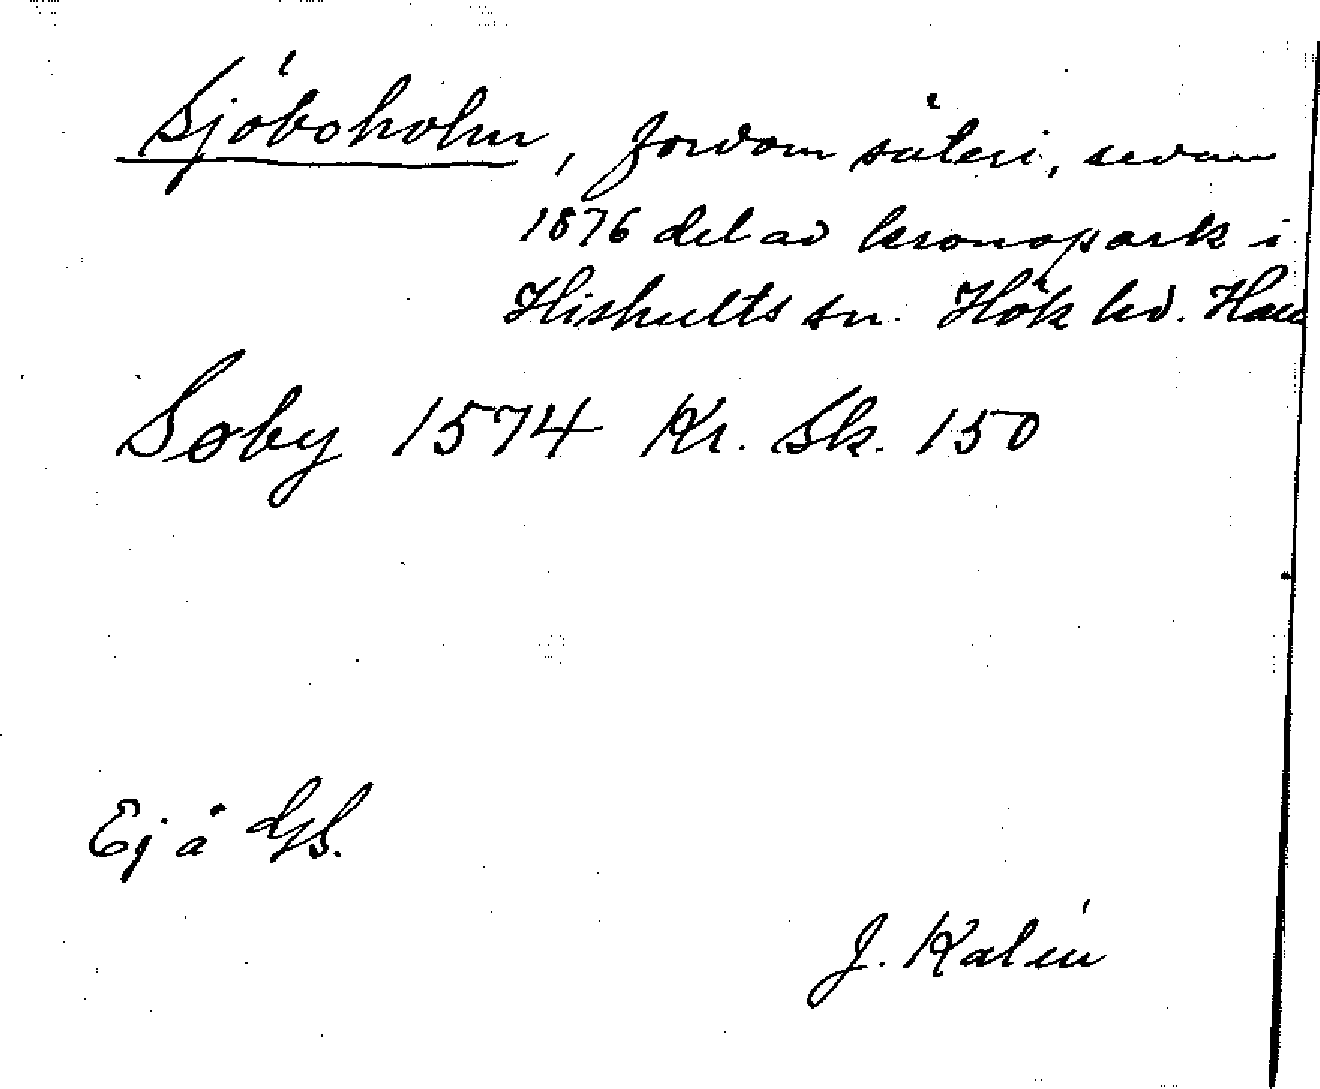 Sjöboholm, fordom säteri, sedan
1876 del av kronopark i
Hishults sn. Höks hd. Hall
Søby 1574 Kr. Sk. 150
Ej å GS.
J. Kalén